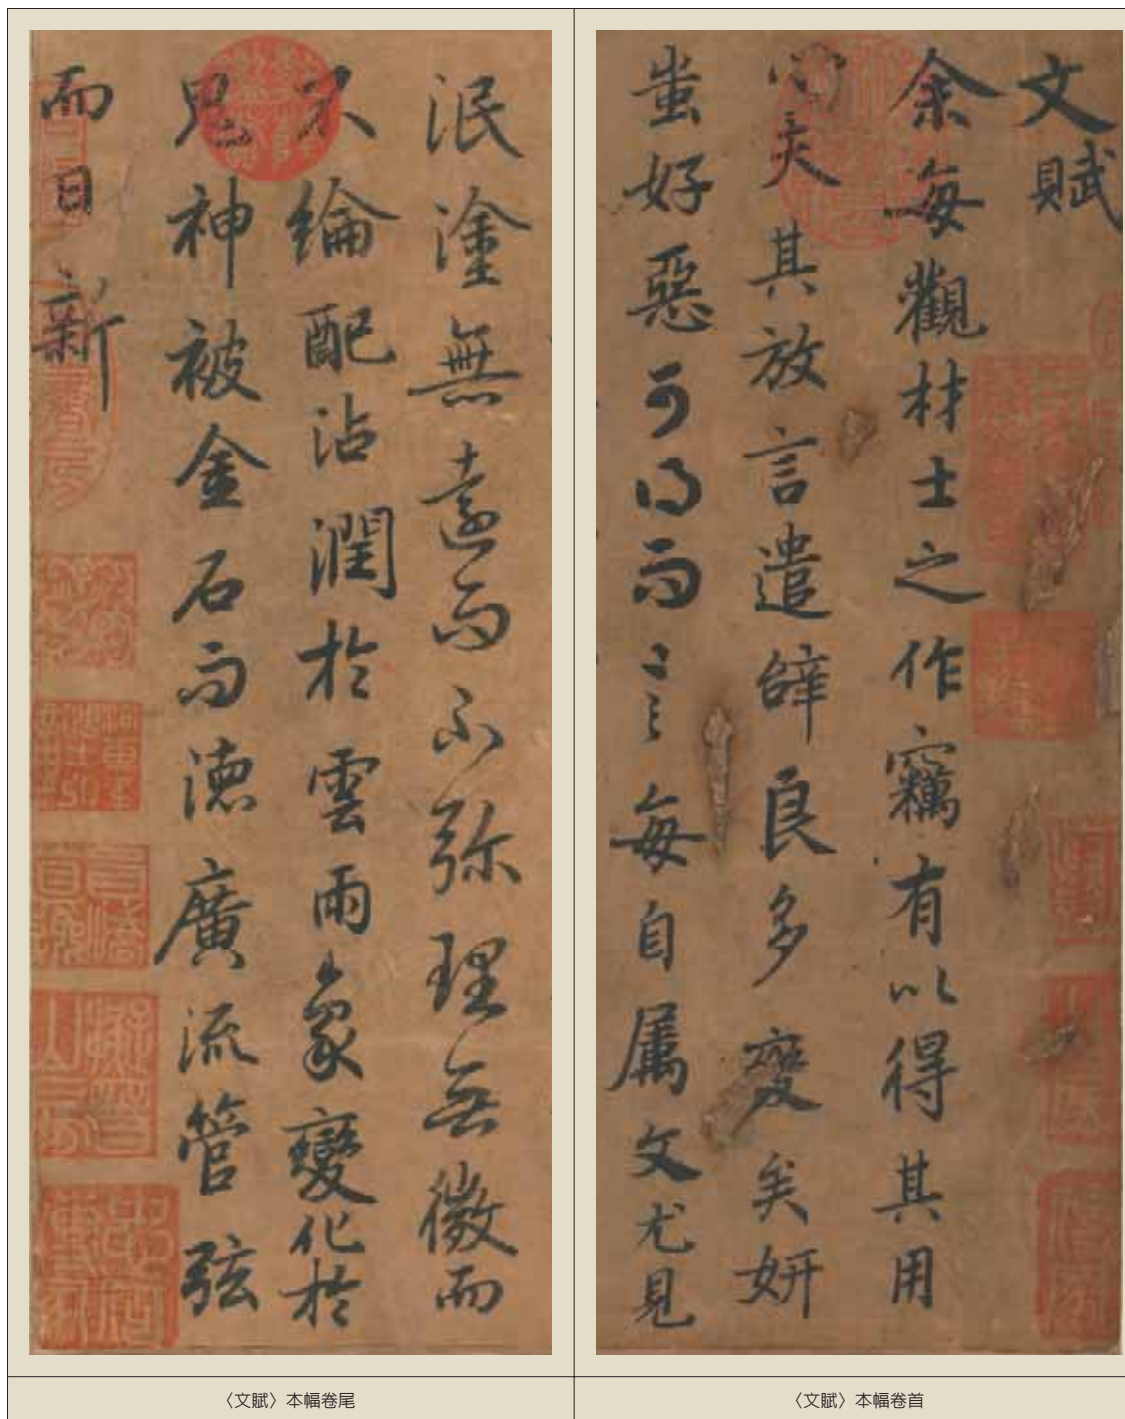 文賦
余每觀材士之作竊有以得其用
心夫其放言遣辭良多變矣妍
蚩好惡可得而言每自属文尤見
〈文賦〉本幅卷首
泯塗無遠而不弥理無微而
不綸配沾潤於雲雨象變化於
鬼神被金石而德廣流管弦
而日新
〈文賦〉本幅卷尾